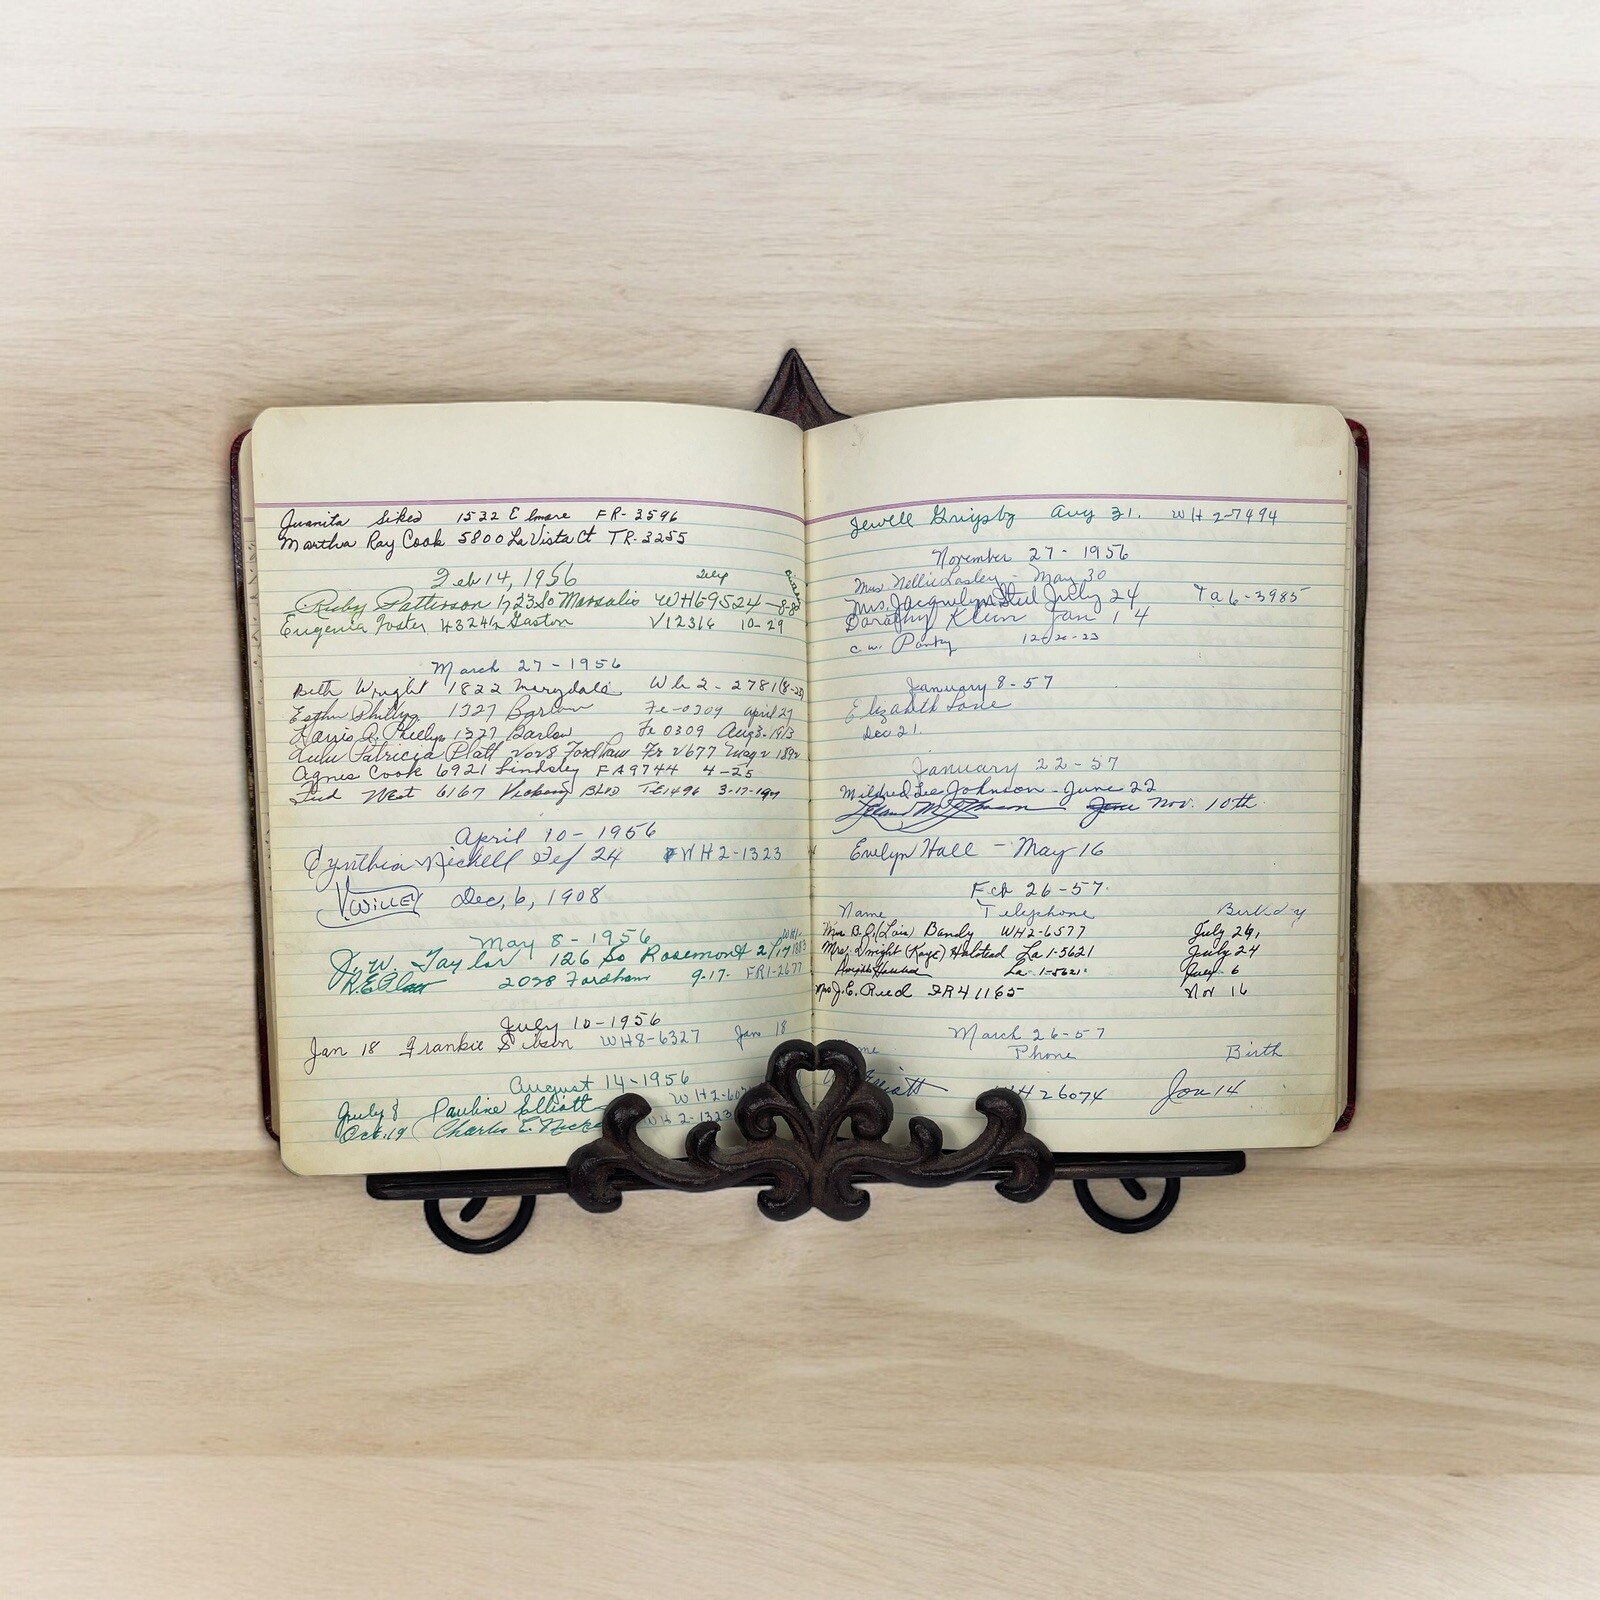 Juanita Sikes 1532 Elmore FR-3596
Martha Ray Cook 5800 La Vista Ct TR-3255
Feb 14, 1956
Ruby Patterson 1723 So Marsalis WH69524 - 8-8
Eugenia Foster 4324½ Gaston V12316 10-29
March 27-1956
Beth Wright 1822 Marydale Wh 2-2781
Esther Phillips 1327 Barlow Fe-0309 April 27
Harris A. Phillips 1327 Barlow Fe 0309 Aug 3-1913
Lulu Patricia Platt 2028 Fordham Fr 2677 May 2 1892
Agnes Cook 6921 Lindsley FA9744 4-25
West 6167 BLVD TE1496 3-17-
April 10-1956
Cynthia Nickell 24 WH2-1323
V. WILLEY Dec, 6, 1908
May 8-1956
J. W. Taylor 126 So Rosemont
R.E. Platt 2028 Fordham 9-17- FR1-2677
July 10-1956
Jan 18 Frankie WH8-6327 Jan 18
August 14-1956
July 8 Pauline Elliott WH2-
Oct. 19 Charles E. WH 2-1323
Jewell Grigsby Aug 31. WH 2-7494
November 27-1956
Mrs Nellie Lasley - May 30
Mrs. Jacquelyn July 24 Ta 6-3985
Dorothy Klein Jan 14
c.w.
January 8-57
Elizabeth Lane
Dec 21.
January 22-57
Mildred Lee Johnson - June 22
Nov. 10th
Evelyn Hall - May 16
Feb 26-57.
Name Telephone Birthday
Mrs B.L. (Lois) Bandy WH2-6577 July 26,
Mrs. Dwight (Kaye) Halstead La 1-5621 July 24
La-1-5621 6
Mrs J. E. Reed DR41165 Nov 16
March 26-57
Phone Birth
26074 Jan 14